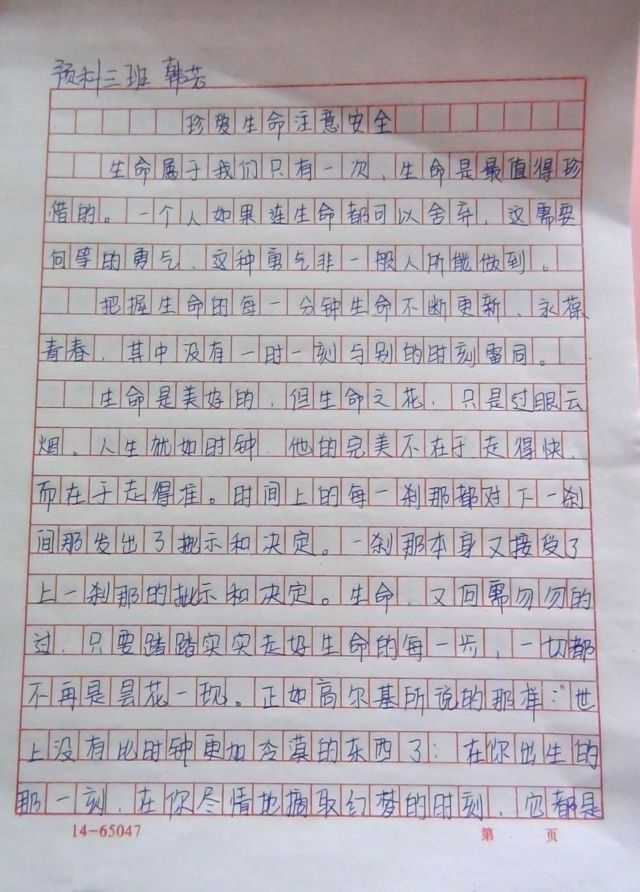 预科三班 韩芸
珍爱生命注意安全
生命属于我们只有一次，生命是最值得珍
惜的。一个人如果连生命都可以舍弃，这需要
何等的勇气，这种勇气非一般人所能做到。
把握生命的每一分钟生命不断更新、永葆
青春，其中没有一时一刻与别的时刻雷同。
生命是美好的，但生命之花，只是过眼云
烟。人生就如时钟，他的完美不在于走得快，
而在于走得准。时间上的每一刹那都对下一刹
间那发出了批示和决定。一刹那本身又接受了
上一刹那的批示和决定。生命，又何需匆匆的
过，只要踏踏实实走好生命的每一步，一切都
不再是昙花一现。正如高尔基所说的那样："世
上没有比时钟更加冷漠的东西了：在你出生的
那一刻，在你尽情地摘取幻梦的时刻，它都是
14-65047
第 页